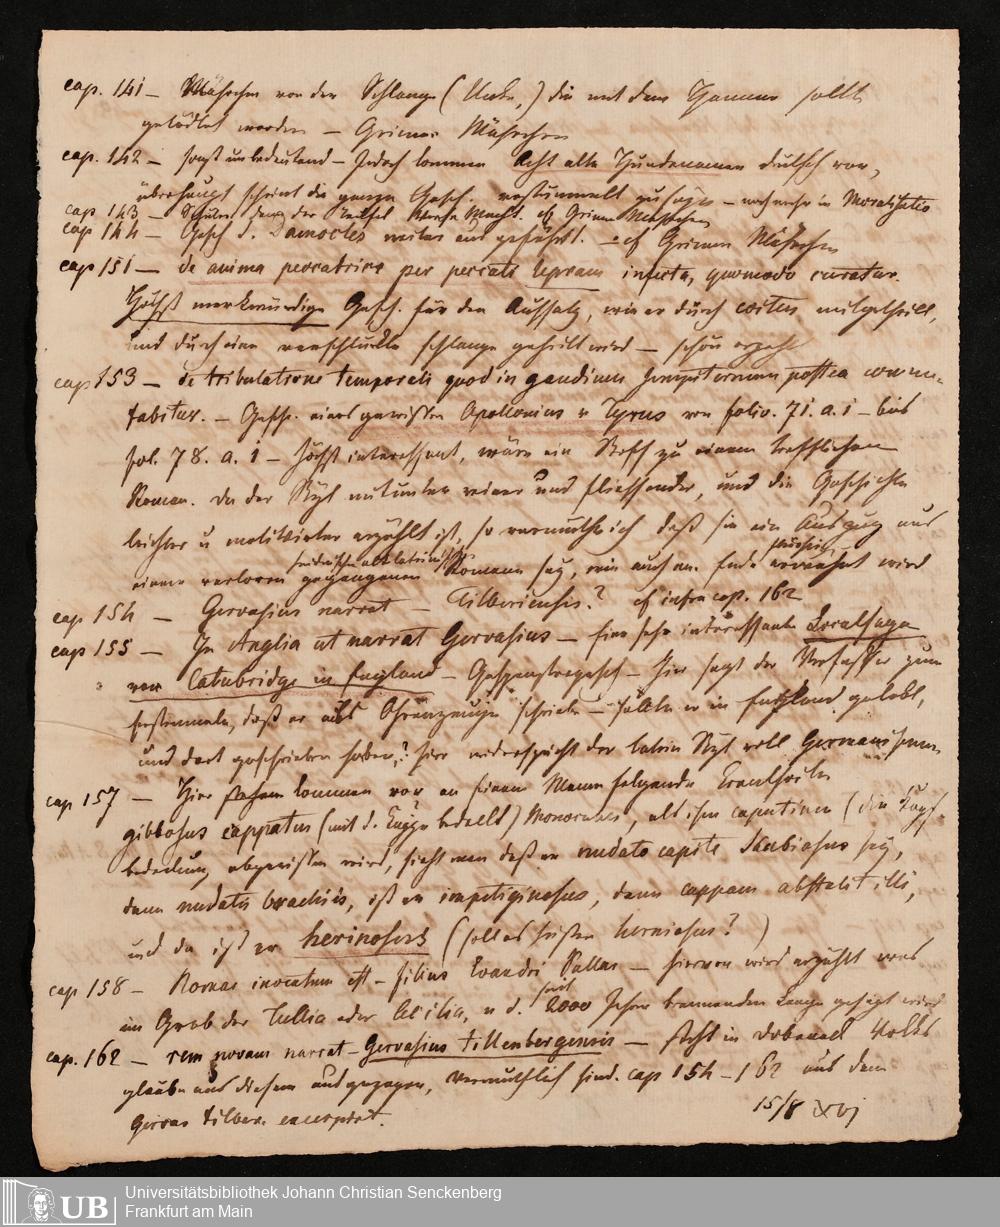 cap. 141 — Mährchen von der Schlange (Unke,) die mit dem Hammer sollte
getödtet werden — Grimms Mährchen
cap. 142 — sonst unbedeutend — jedoch kommen acht alte Hundenamen deutsch vor,
überhaupt scheint die ganze Gesch. — noch mehr in Moralitatis
cap 143 — der cf Grimm Mährchen
cap 144 — Gesch d. Damocles weiter ausgeführt. — cf Grimm Mährchen
cap 151 — de anima peccatrice per peccati lepram infecta, quomodo curatur.
Höchst merkwürdige Gesch. für den Aussatz, wie er durch coitus mitgetheilt,
und durch eine verschluckte Schlange geheilt wird — schön erzählt
cap 153 — de tribulatione temporali quod in gaudium sempiternum postea commu-
tabitur. — Gesch. eines gewissen Apollonius v Tyrus von folio. 71. a. 1 — bis
fol. 78. a. 1 — höchst interessant, wäre ein Stoff zu einem trefflichen
Roman. Da der Styl mitunter reiner und fliessender, und die Geschichte
leichter u motivirter erzählt ist, so vermuthe ich daß sie ein Auszug aus
einem verloren gegangenen altlateinischen Roman sey, wie auch am Ende erwähnt wird
cap 154 — Gervasius narrat — Tilberiensis? cf infra cap. 162
cap 155 — In Anglia ut narrat Gervasius — Eine sehr interessante Localsage
von Catubridge in England — Gespenstergesch — hier sagt der Verfasser zum
erstenmale, daß er als Ohrenzeuge schriebe — sollte er in England gelebt,
und dort geschrieben haben,? hier widerspricht der latein Styl voll Germanismen.
cap 157 — Hier kommen vor an einem Mann folgende Krankheiten
gibbosus cappatus (mit d. Kappe bedeckt) Monoculus, als ihm caputium (die Kopf-
bedeckung abgerissen wird, sieht man daß er nudato capite scabiosus sey,
dann nudatis brachiis, ist er impetiginosus, dann cappam abstulit illi,
und da ist er herinosus (soll es heißen herniosus? )
cap 158 — Romae inventum est — filius Evandri Pallas — hiervon wird erzählt was
im Grab der Tullia oder Cecilia, u d. seit 2000 Jahren brennenden Lampe gesagt wird
cap. 162 — rem novam narrat — Gervasius tillenbergensis — steht in Dobeneck Volks
glaube aus diesem ausgezogen, vermuthlich sind cap 154 — 162 aus dem
Gervas tilber. excerpirt.
15/8 xvj
Universitätsbibliothek Johann Christian Senckenberg
Frankfurt am Main
UB